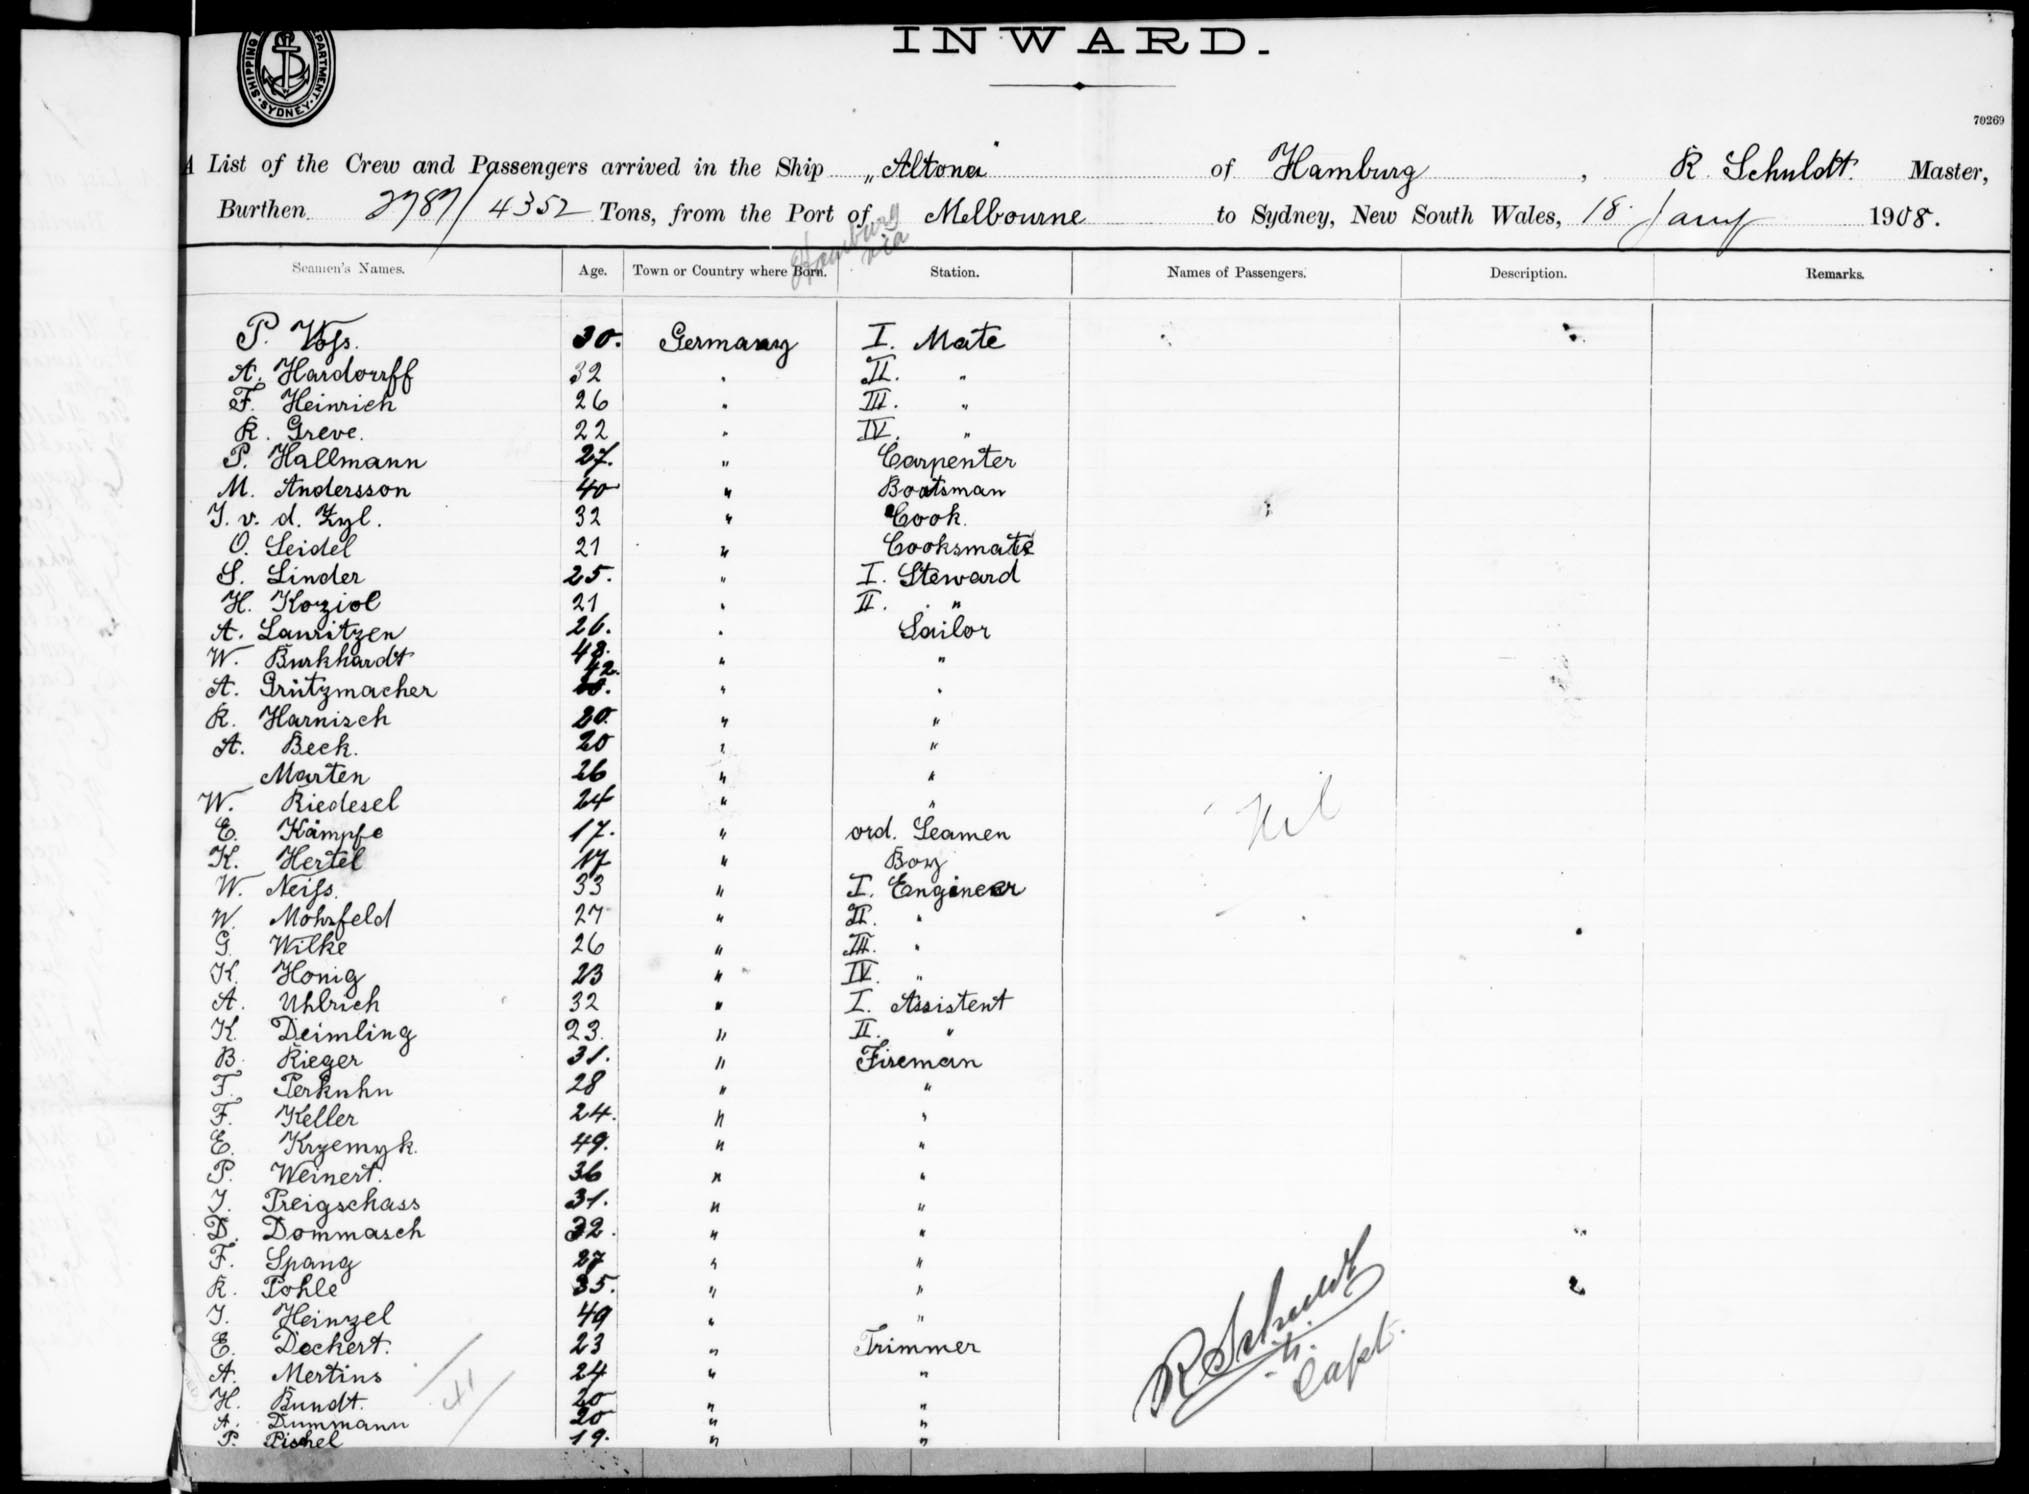 INWARD.
SHIPPING
PARTMENT
SYDNEY
70269
A List of the Crew and Passengers arrived in the Ship "Altona" of Hamburg, R. Schuldt. Master,
Burthen 2787/4352 Tons, from the Port of Hamburg via Melbourne to Sydney, New South Wales, 18 Jany 1908.
Seamen's Names. Age. Town or Country where Born. Station. Names of Passengers. Description. Remarks.
P. Voſs. 30. Germany I. Mate
A. Hardorrff 32 " II. "
F. Heinrich 26 " III. "
R. Greve. 22 " IV. "
P. Hallmann 27. " Carpenter
M. Andersson 40 " Boatsman
J. v. d. Zyl. 32 " Cook.
O. Seidel 21 " Cooksmate
S. Linder 25. " I. Steward
H. Koziol 21 " II. "
A. Lauritzen 26. " Sailor
W. Burkhardt 48. " "
A. Grützmacher 42. " "
R. Harnisch 20. " "
A. Beck. 20 " "
Marten 26 " "
W. Riedesel 24 " "
E. Kämpfe 17. " ord. Seamen
K. Hertel 17 " Boy
W. Neiſs. 33 " I. Engineer
W. Mohrfeld 27 " II. "
G. Wilke 26 " III. "
K. Honig 23 " IV. "
A. Uhlrich 32 " I. Assistent
K. Deimling 23. " II. "
B. Rieger 31. " Fireman
F. Perkuhn 28 " "
F. Keller 24. " "
E. Krzemyk. 49. " "
P. Weinert. 36 " "
J. Preigschass 31. " "
D. Dommasch 32. " "
F. Spang 27 " "
R. Pohle 35. " "
J. Heinzel 49 " "
E. Dockert. 23 " Trimmer
A. Mertins 24 " "
H. Bundt. 20 " "
A. Dummann 20 " "
P. Pischel 19. " "
Nil
41
R Schuldt
Capt.